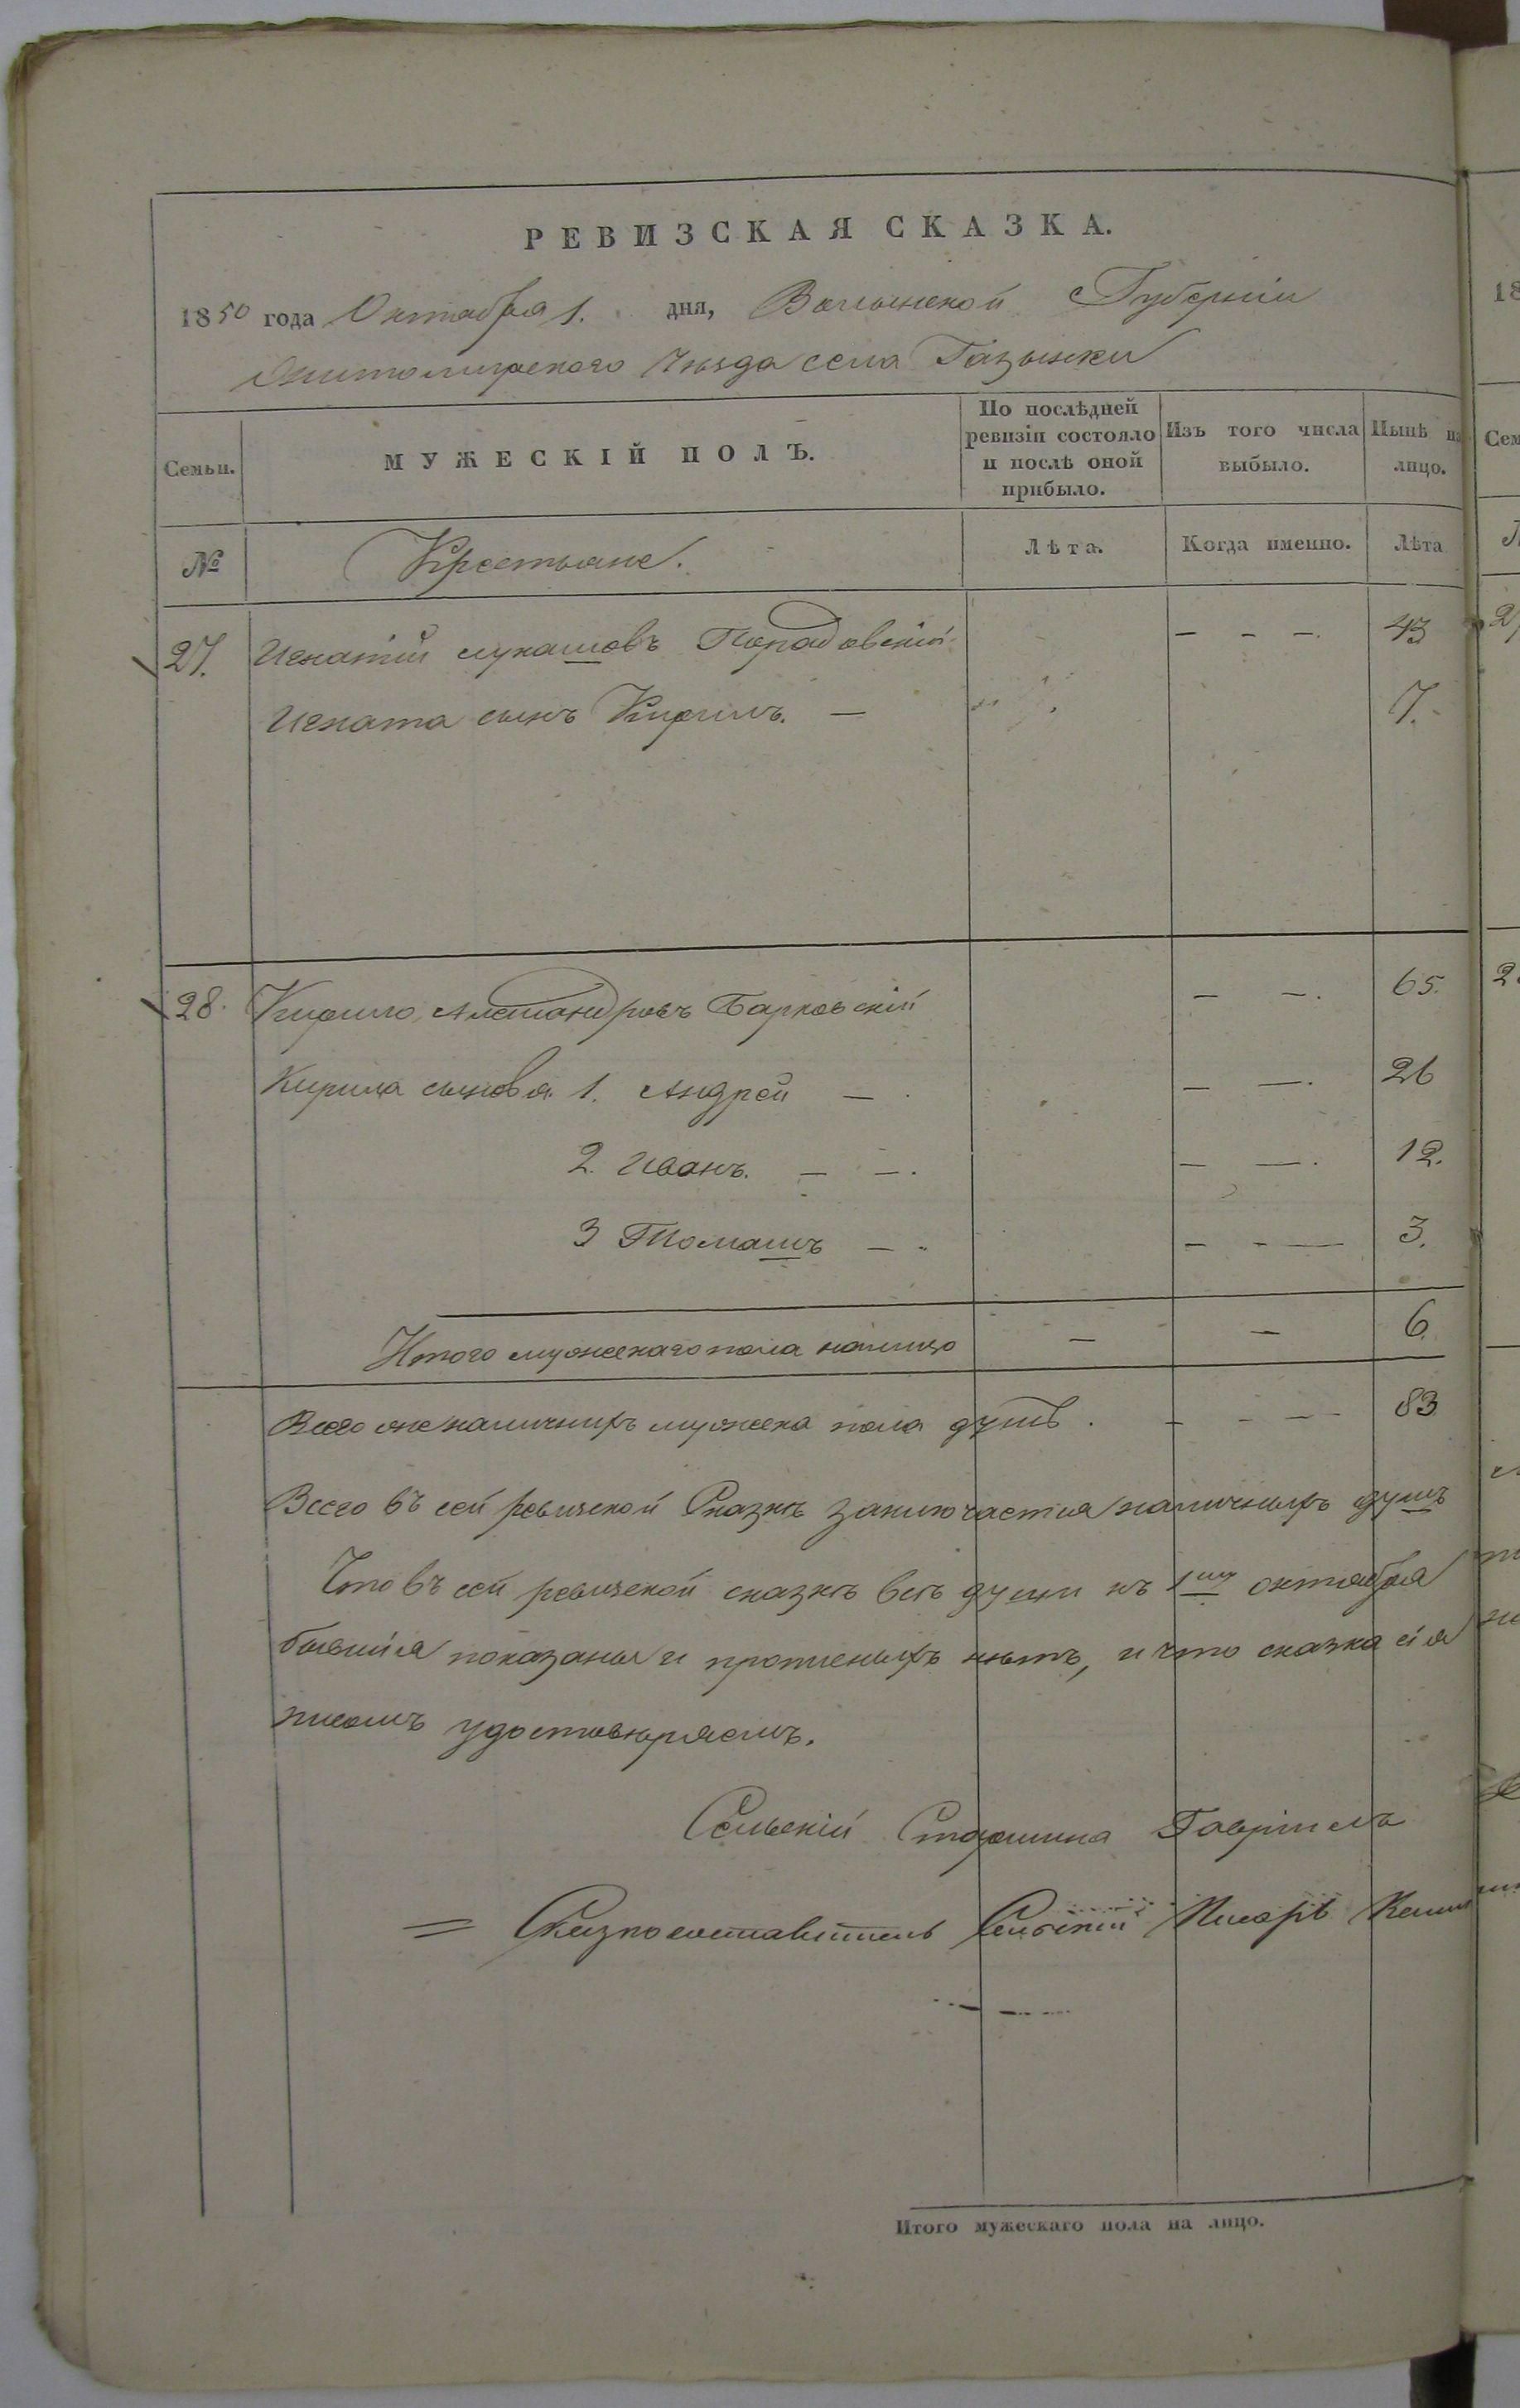 РЕВИЗСКАЯ СКАЗКА.
1850 года Октября 1. дня, Волынской Губерніи
Житомирского Уезда села Газынки
Семьи.
МУЖЕСКІЙ ПОЛЪ.
По послѣдней ревизіи состояло и послѣ оной прибыло.
Изъ того числа выбыло.
Нынѣ на лицо.
№ Крестьяне. Лѣта. Когда именно. Лѣта
27. Игнатій Лукашовъ Порадовскій - - - 43
Игната сынъ Кирилъ. — 7.
28. Кирило Александровъ Барковскій — —. 65.
Кирила сыновя 1. Андрей — — —. 26
2. Иванъ. — —. — —. 12.
3 Томашъ — - - — 3.
Итого мужескаго пола налицо — — 6
Всего же наличныхъ мужеска пола душъ. - - — 83
Всего въ сей ревизской Сказкѣ заключается наличныхъ душъ
Что въ сей ревизской сказкѣ всѣ души къ 1му октября
бывшія показаны и нѣтъ, и что сказка сія
удостовѣряемъ.
Сельскій Старшина Гавріилъ
= Сказкосоставитель Сельскій Писарь
Итого мужескаго пола на лицо.